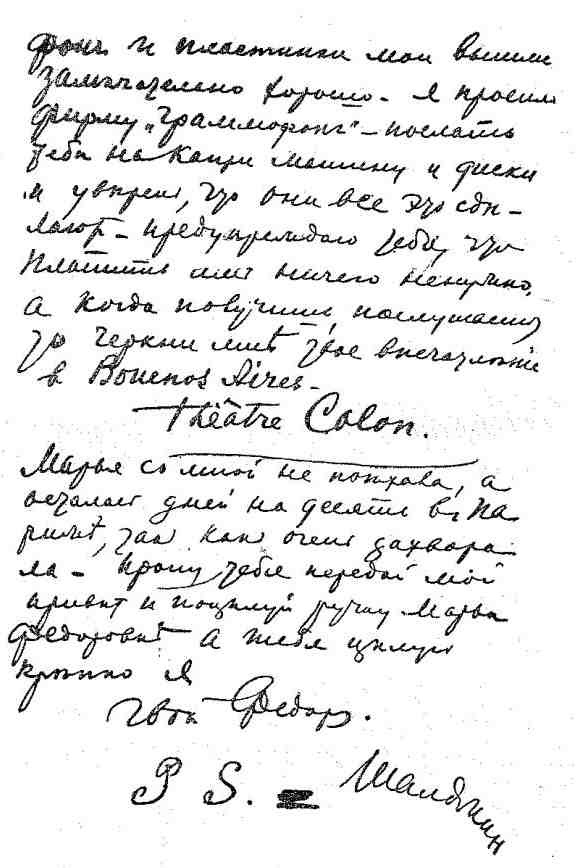 фонъ и пластинки мои вышли
замѣчательно хорошо. Я просилъ
фирму „Граммофонъ“ – послать
тебѣ на Капри машину и диски
и увѣренъ, что они все это сдѣ-
лаютъ – предупреждаю тебя, что
платить имъ ничего ненужно,
а когда получишь, послушаешь
то черкни мнѣ твое впечатлѣніе
в Bouenos Aires –
Théâtre Colon.
Марья со мной не поѣхала, а
осталась дней на десять въ Па
рижѣ, так как очень захвора
ла – Прошу тебя передай мой
привѣт и поцѣлуй ручку Марьи
Федоровнѣ а тебя цѣлую
крѣпко я
твой Федоръ.
P S. = Шаляпин